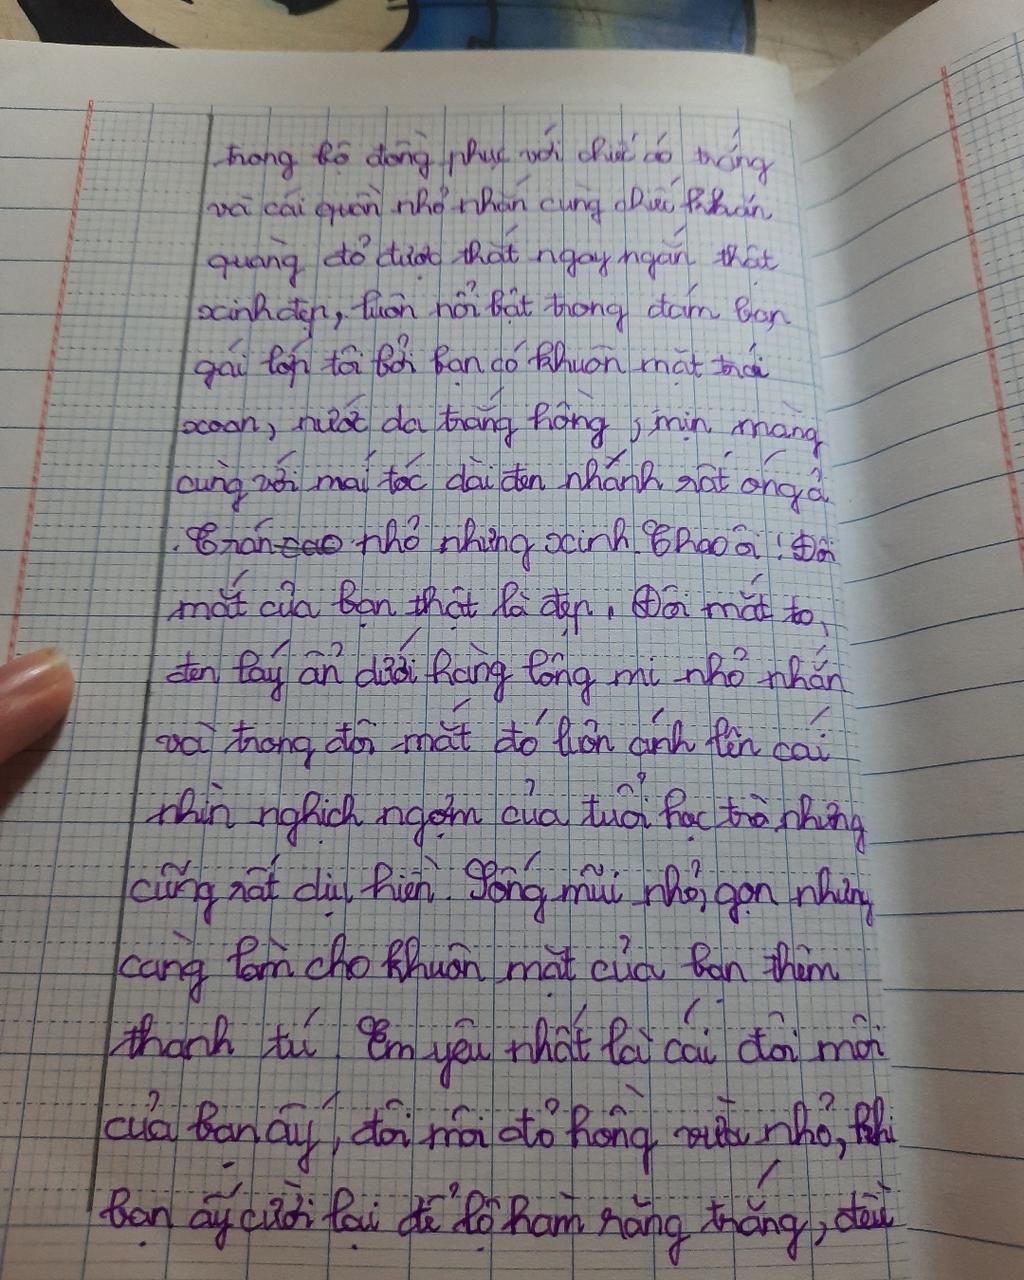 trong bộ đồng phục với chiếc áo trắng
và cái quần nhỏ nhắn cùng chiếc khăn
quàng đỏ được thắt ngay ngắn thật
xinh đẹp, luôn nổi bật trong đám bạn
gái lớp tôi bởi bạn có khuôn mặt trái
xoan, nước da trắng hồng, mịn màng
cùng với mái tóc dài đen nhánh rất óng ả
. Trán cao nhỏ nhưng xinh. Chao ôi! Đôi
mắt của bạn thật là đẹp. Đôi mắt to,
đen láy ẩn dưới hàng lông mi nhỏ nhắn
và trong đôi mắt đó luôn ánh lên cái
nhìn nghịch ngợm của tuổi học trò nhưng
cũng rất dịu hiền. Sống mũi nhỏ, gọn nhưng
càng làm cho khuôn mặt của bạn thêm
thanh tú. Em yêu nhất là cái đôi môi
của bạn ấy, đôi môi đỏ hồng vừa nhỏ, khi
bạn ấy cười lại để lộ hàm răng trắng, đều